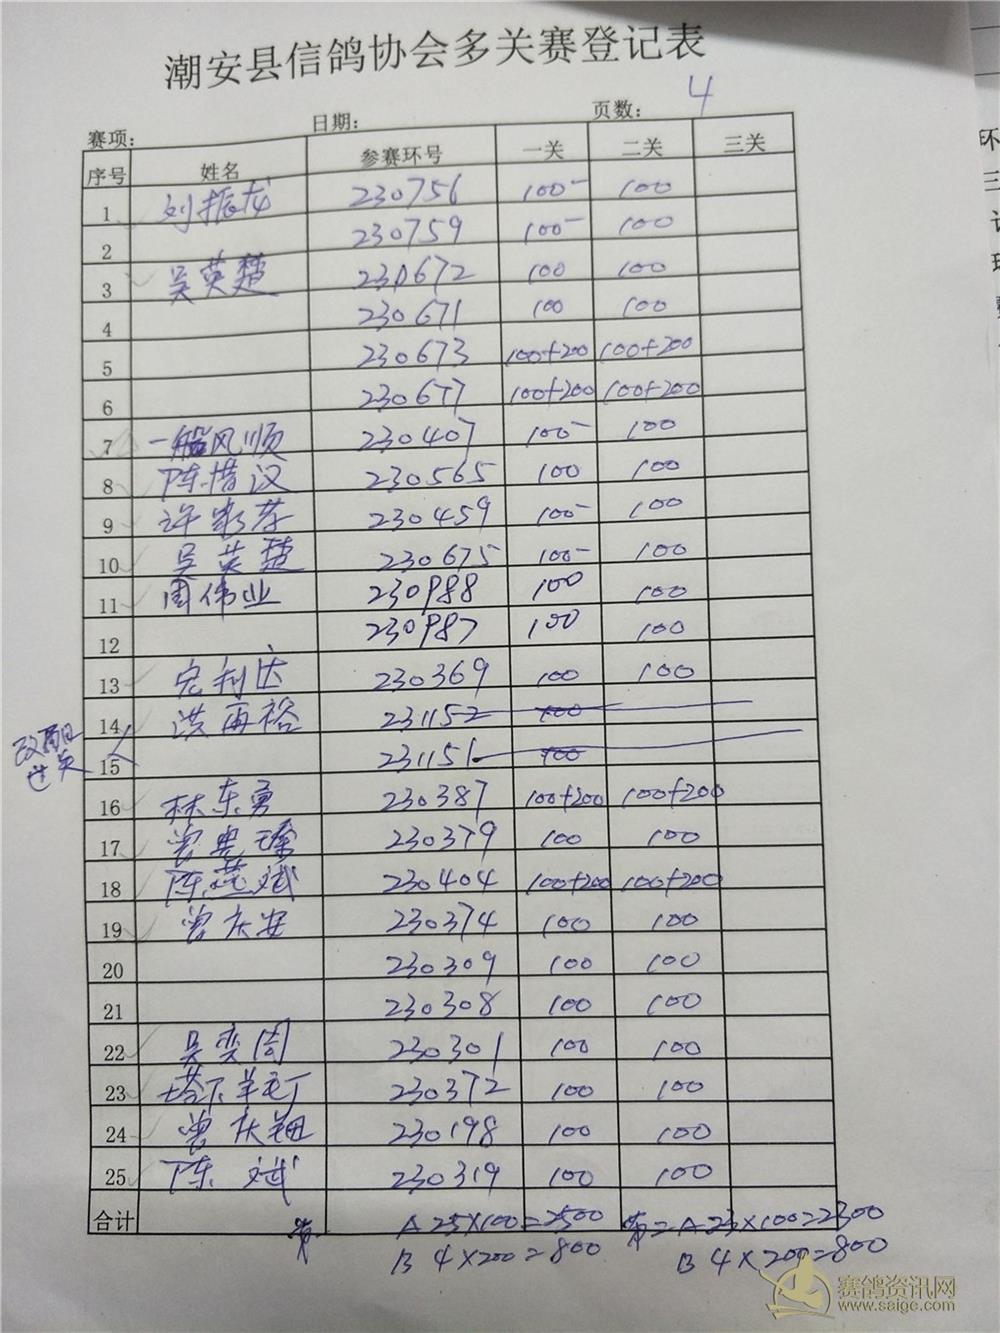 潮安县信鸽协会多关赛登记表
4
赛项： 日期： 页数：
序号 姓名 参赛环号 一关 二关 三关
1 刘振龙 230756 100- 100
2 230759 100- 100
3 吴英楚 230672 100 100
4 230671 100 100
5 230673 100+200 100+200
6 230677 100+200 100+200
7 一船风顺 230407 100- 100
8 陈惜汉 230565 100 100
9 许 230459 100- 100
10 吴英楚 230675 100- 100
11 周伟业 230988 100 100
12 230987 100 100
13 宏利达 230369 100 100
14 洪再裕 231152 100
15 231151 100
16 林东勇 230387 100+200 100+200
17 曾 230379 100 100
18 陈燕斌 230404 100+200 100+200
19 曾庆安 230374 100 100
20 230309 100 100
21 230308 100 100
22 吴奕周 230301 100 100
23 塔下羊毛丁 230372 100 100
24 曾庆钿 230198 100 100
25 陈斌 230319 100 100
合计 第一 A 25×100=2500 第二 A 23×100=2300
B 4×200=800 B 4×200=800
赛鸽资讯网
www.saige.com
环
三